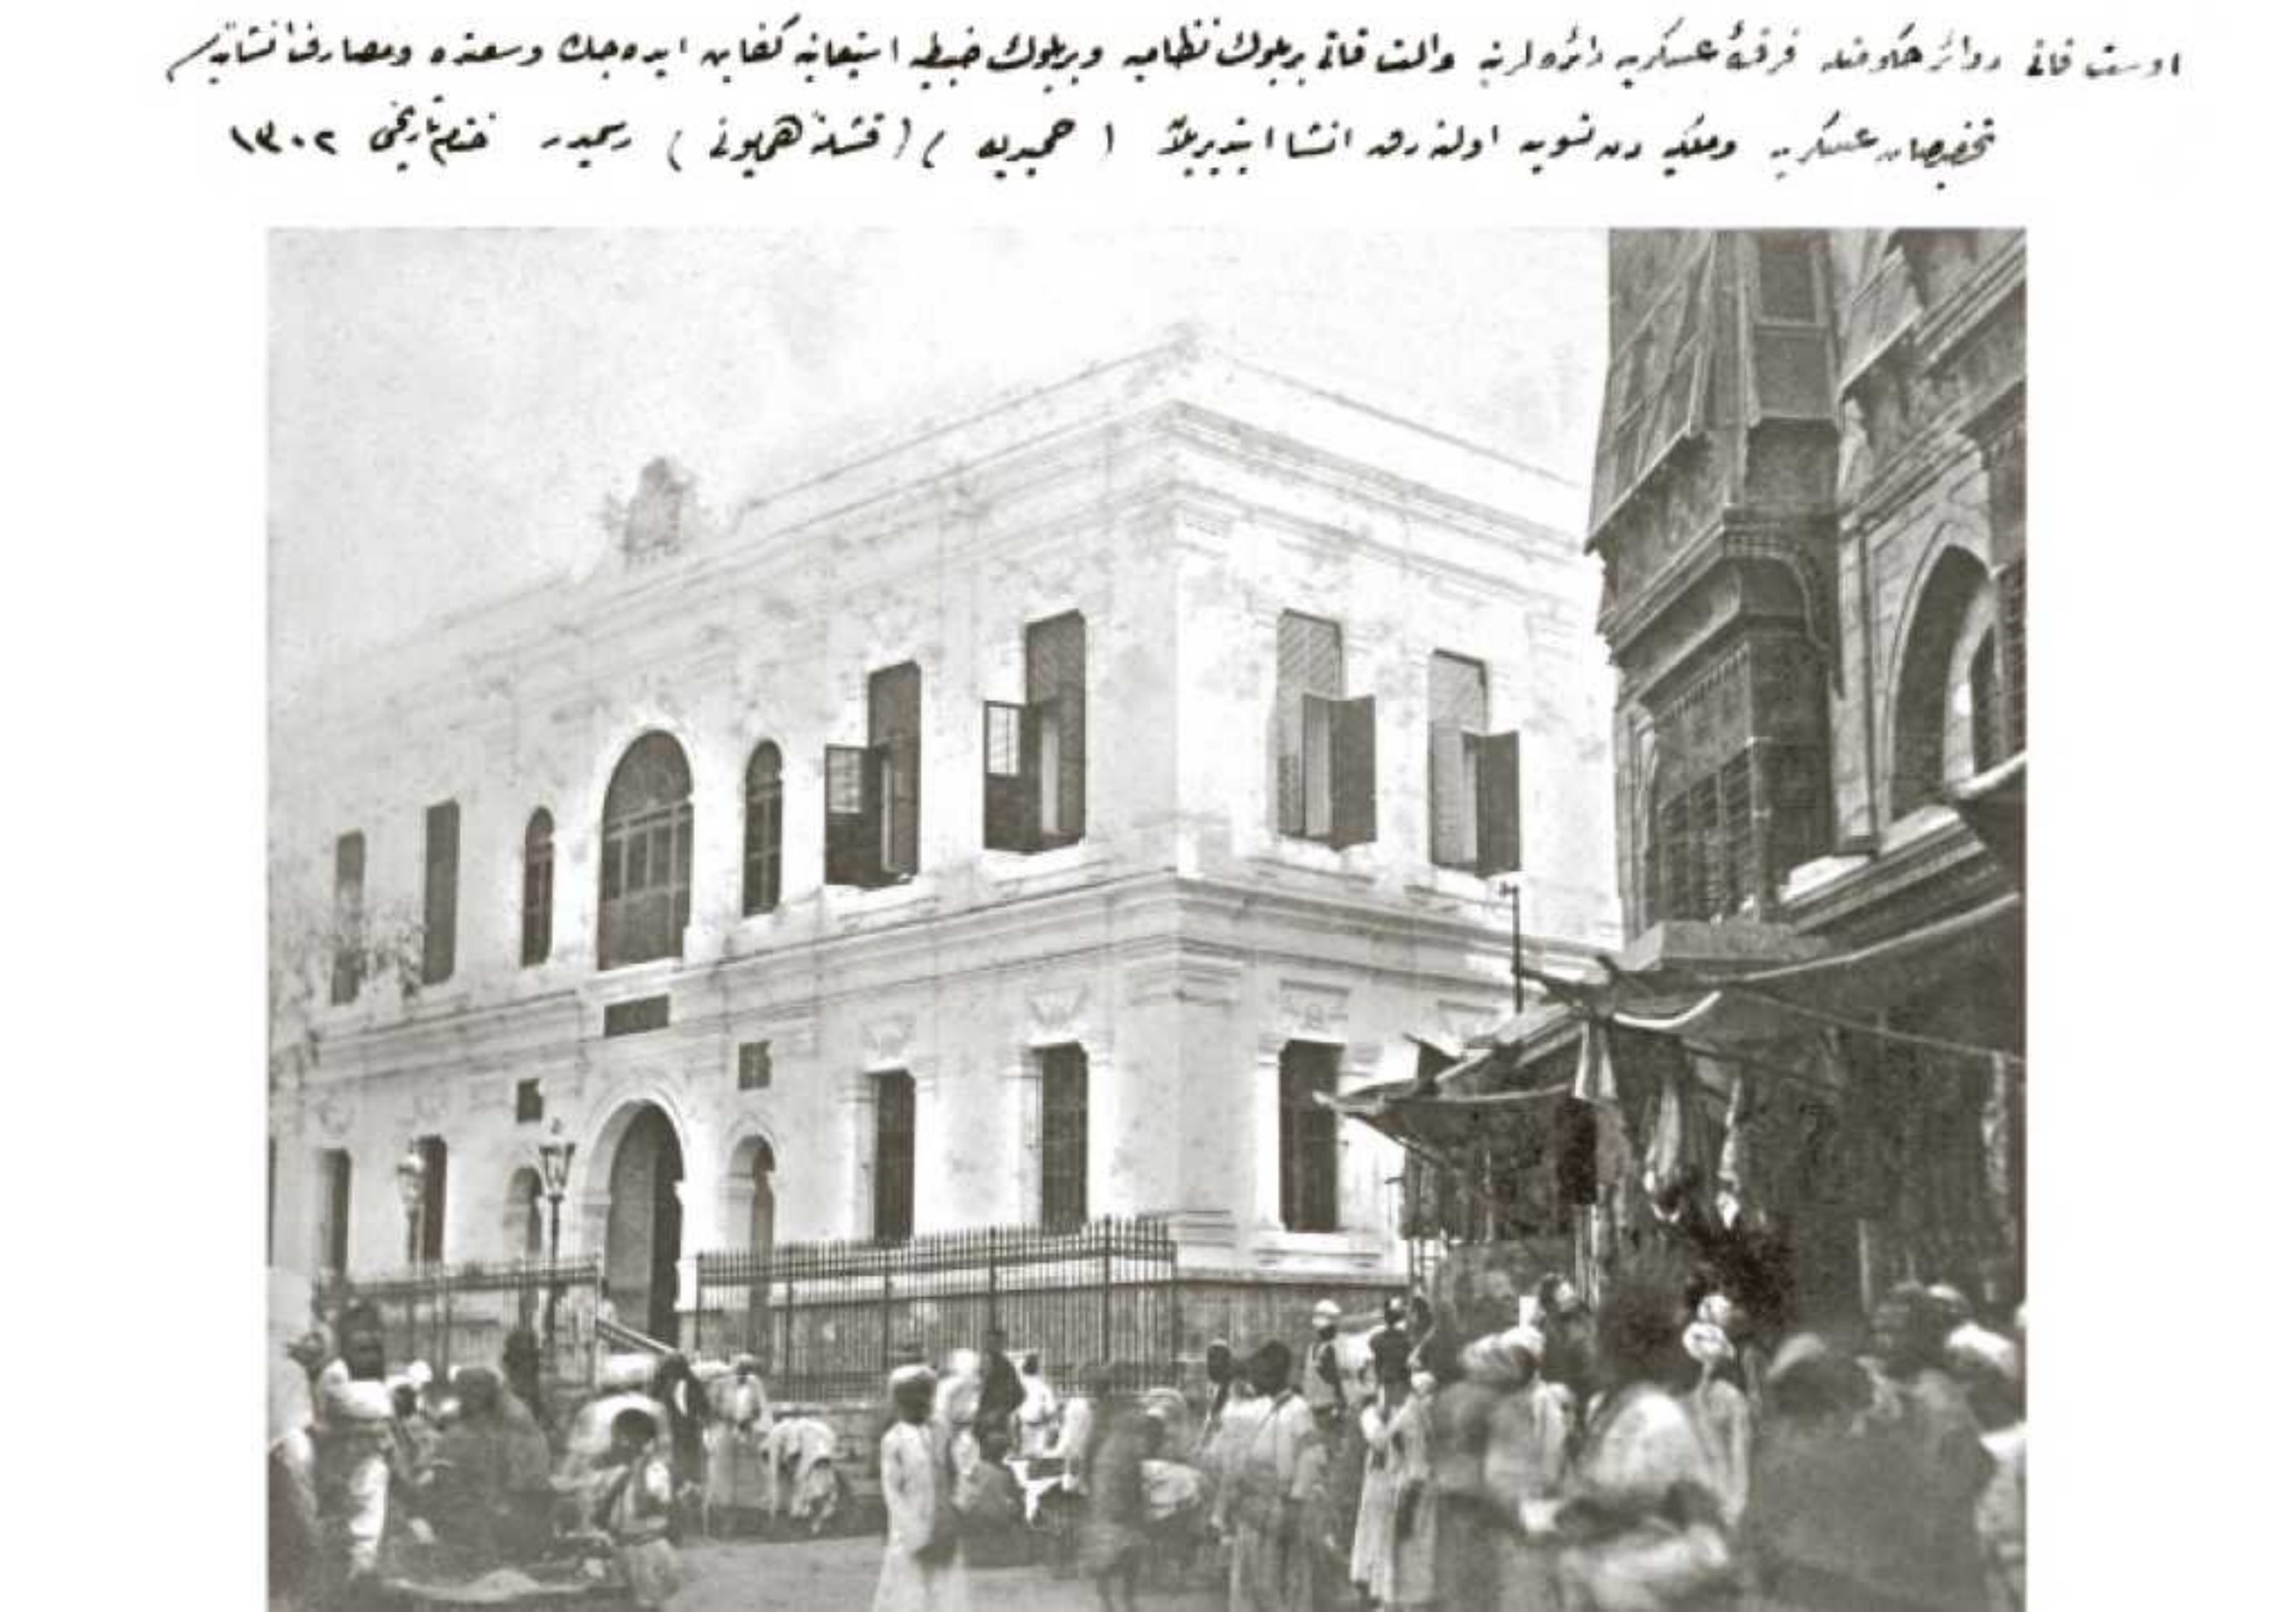 اوست قاتی دوائر حكومته فرقهٔ عسكریه دائره لرینه والت قاتی بر بلوك نظامیه وبر بلوك ضبطیه استیعابنه كفایت ایده جك وسعتده ومصارف انشائیه سی
تخصیصات عسكریه وملكیه دن تسویه اولنه رق انشا ایتدیریلان ( حمیدیه ) ( قشلهٔ همایونی ) رسمیدر ختام تاریخی ١٣٠٢